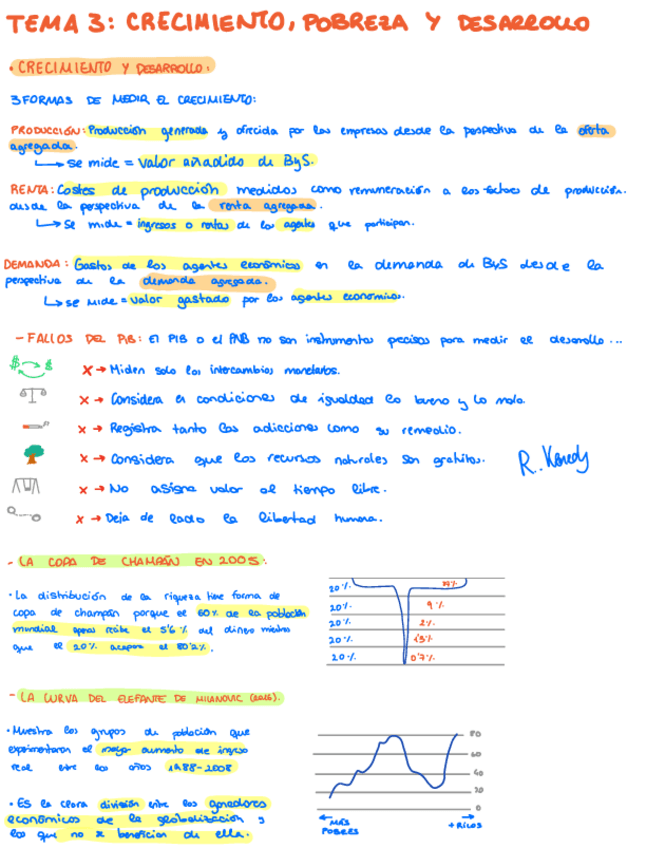 TEMA 3: CRECIMIENTO, POBREZA Y DESARROLLO
• CRECIMIENTO Y DESARROLLO:
3 FORMAS DE MEDIR EL CRECIMIENTO:
PRODUCCIÓN: Producción generada y ofrecida por las empresas desde la perspectiva de la oferta
agregada.
↳ se mide = valor añadido de ByS.
RENTA: Costes de producción medidos como remuneración a los factores de producción.
desde la perspectiva de la renta agregada.
↳ Se mide = ingresos o rentas de los agentes que participan.
DEMANDA: Gastos de los agentes económicos en la demanda de ByS desde la
perspectiva de la demanda agregada.
↳ se mide = valor gastado por los agentes económicos.
- FALLOS DEL PIB: El PIB o el PNB no son instrumentos precisos para medir el desarrollo...
$ $
x → Miden solo los intercambios monetarios.
x → Considera en condiciones de igualdad lo bueno y lo malo.
x → Registra tanto las adicciones como su remedio.
x → Considera que los recursos naturales son gratuitos.
x → No asigna valor al tiempo libre.
x → Deja de lado la libertad humana.
- LA COPA DE CHAMPÁN EN 2005:
• La distribución de la riqueza tiene forma de
copa de champán porque el 60% de la población
mundial apenas recibe el 5'6% del dinero mientras
que el 20% acapara el 80'2%.
20%.
20%. 9%
20%. 2%.
20%. 1'3%.
20%. 0'7%.
- LA CURVA DEL ELEFANTE DE MILANOVIC (2016).
• Muestra los grupos de población que
experimentaron el mayor aumento de ingreso
real entre los años 1988-2008
• Es la clara división entre los ganadores
económicos de la globalización y
los que no se benefician de ella.
80
60
40
20
0
← MÁS
POBRES
→
+ RICOS